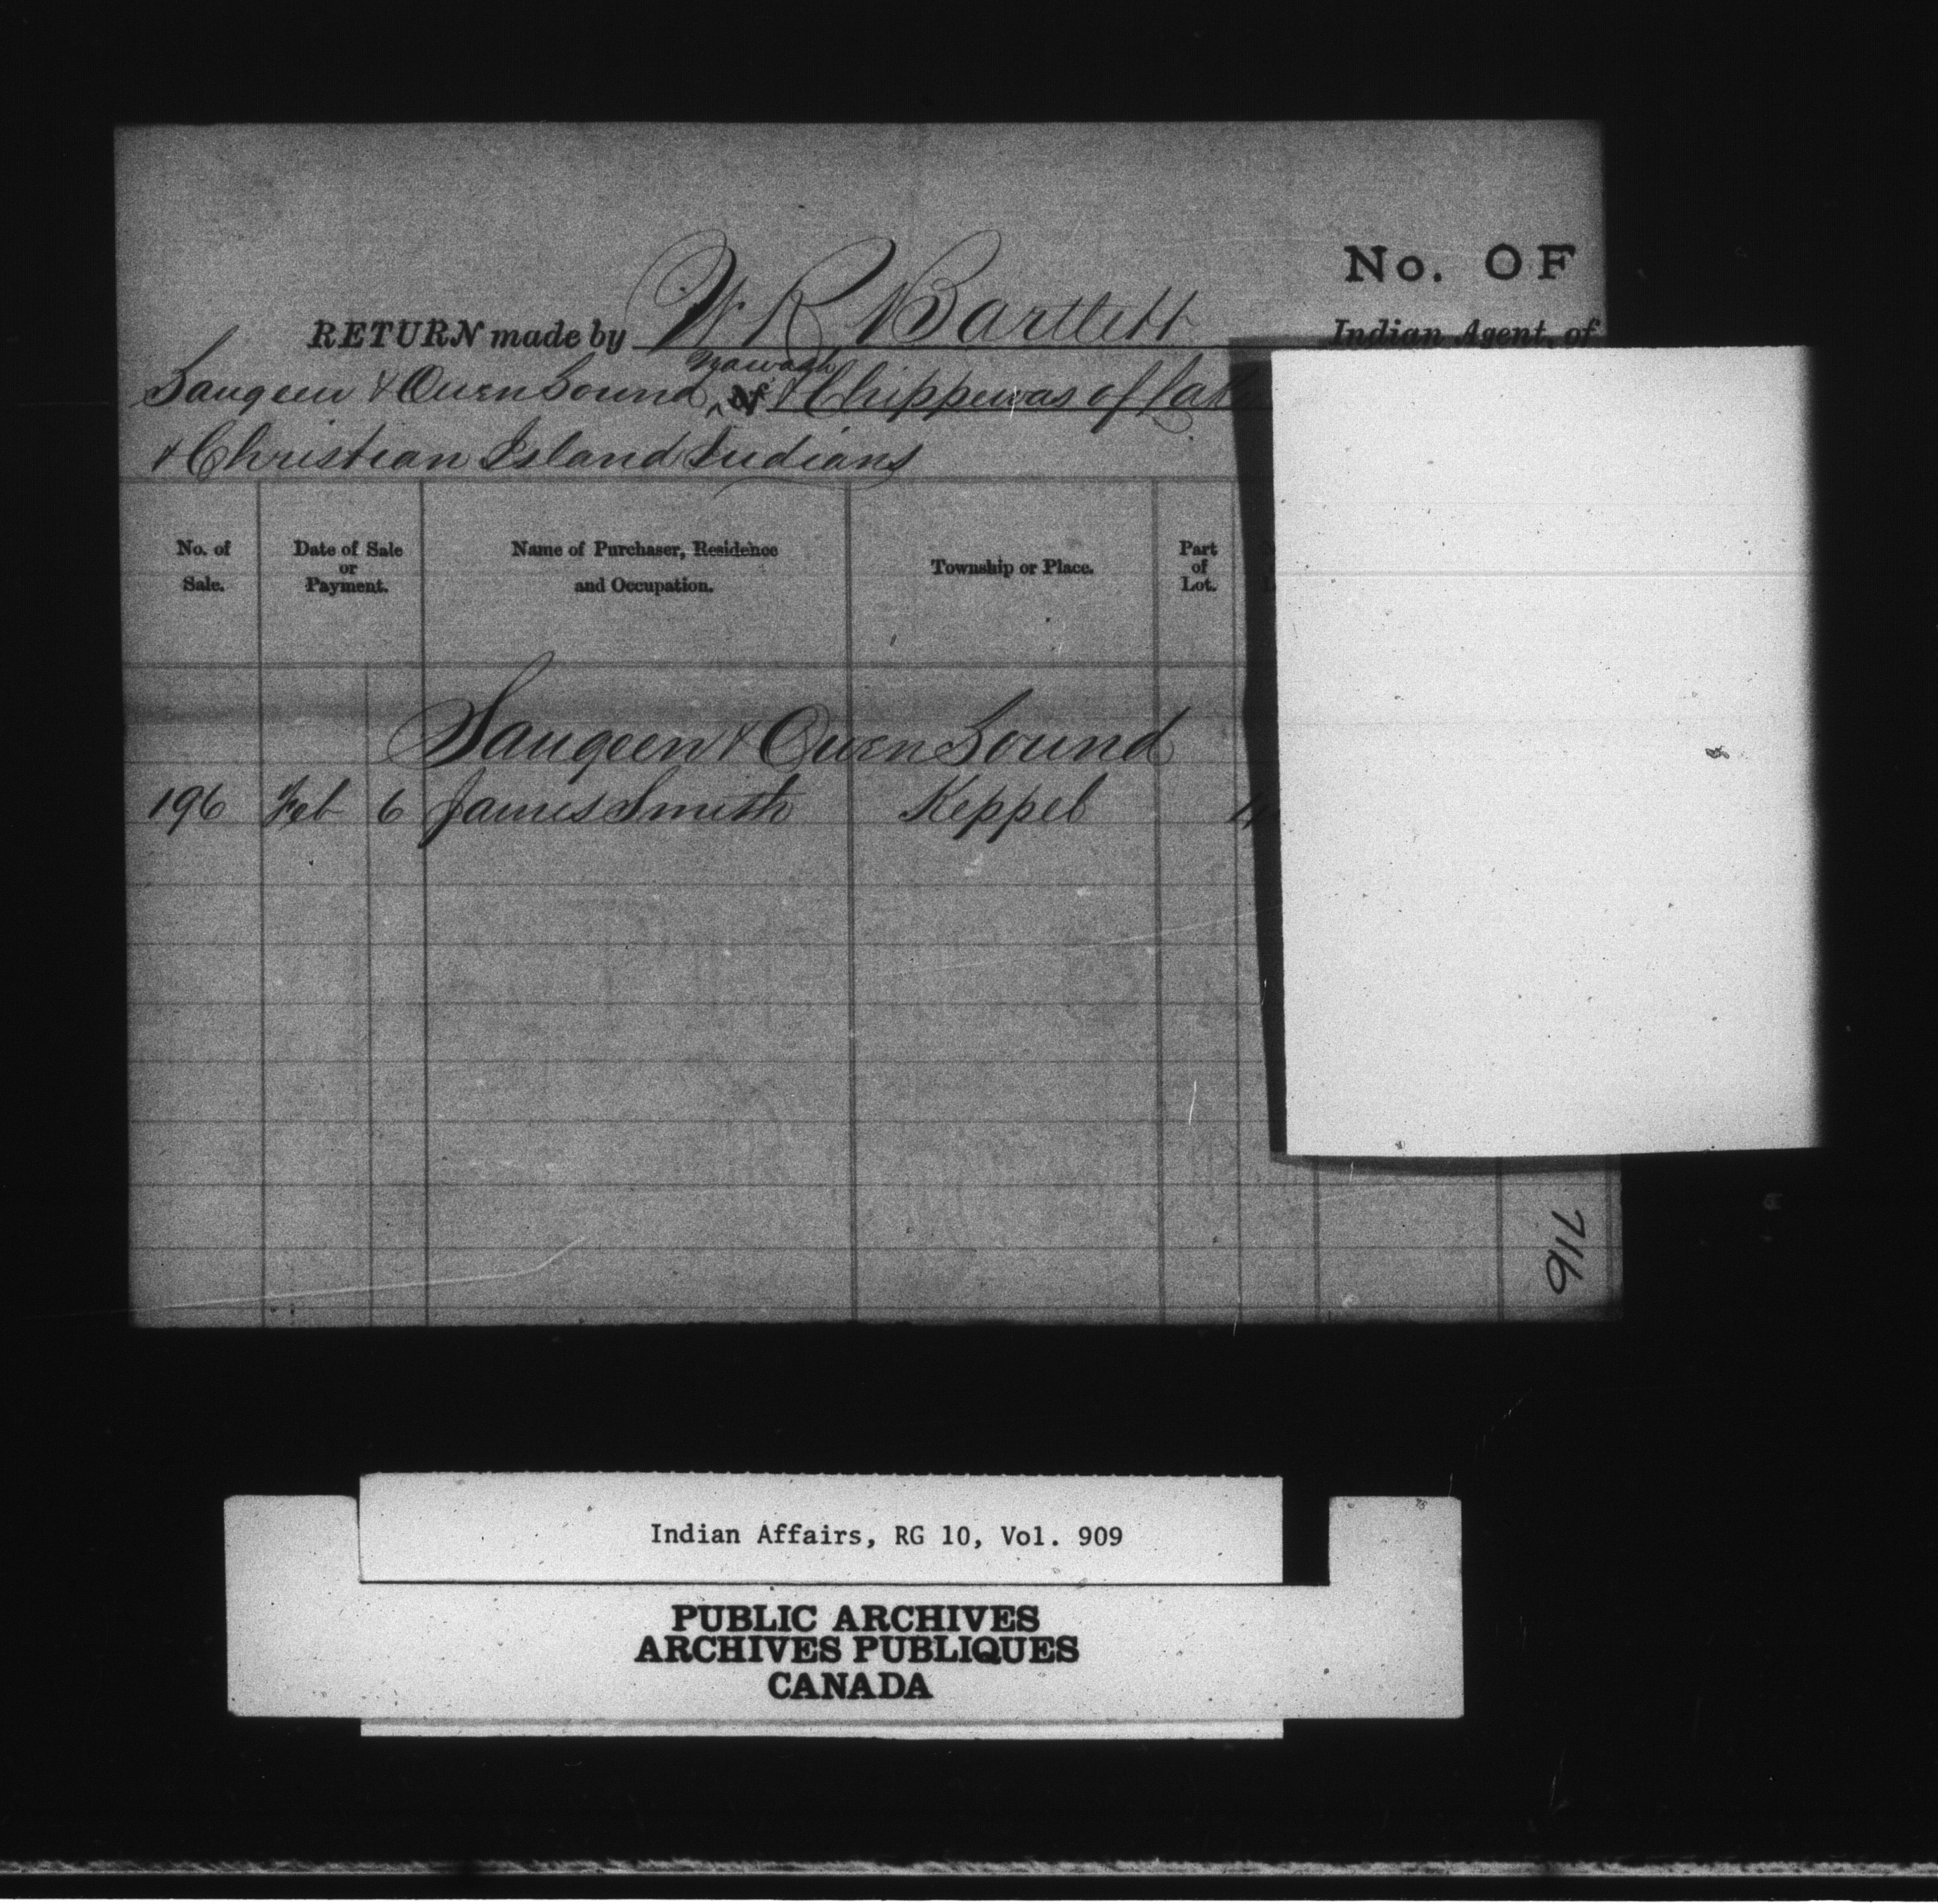 No. OF
RETURN made by W R Bartlett Indian Agent, of
Nawash
Saugeen & Owen Sound, & Chippewas of Lak
& Christian Island Indians
No. of Sale. Date of Sale or Payment. Name of Purchaser, Residence and Occupation. Township or Place. Part of Lot.
Saugeen & Owen Sound
196 Feb 6 James Smith Keppel
716
Indian Affairs, RG 10, Vol. 909
PUBLIC ARCHIVES
ARCHIVES PUBLIQUES
CANADA